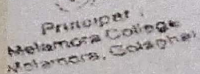 Principal,
Melamora College
Melamora, Golaghat